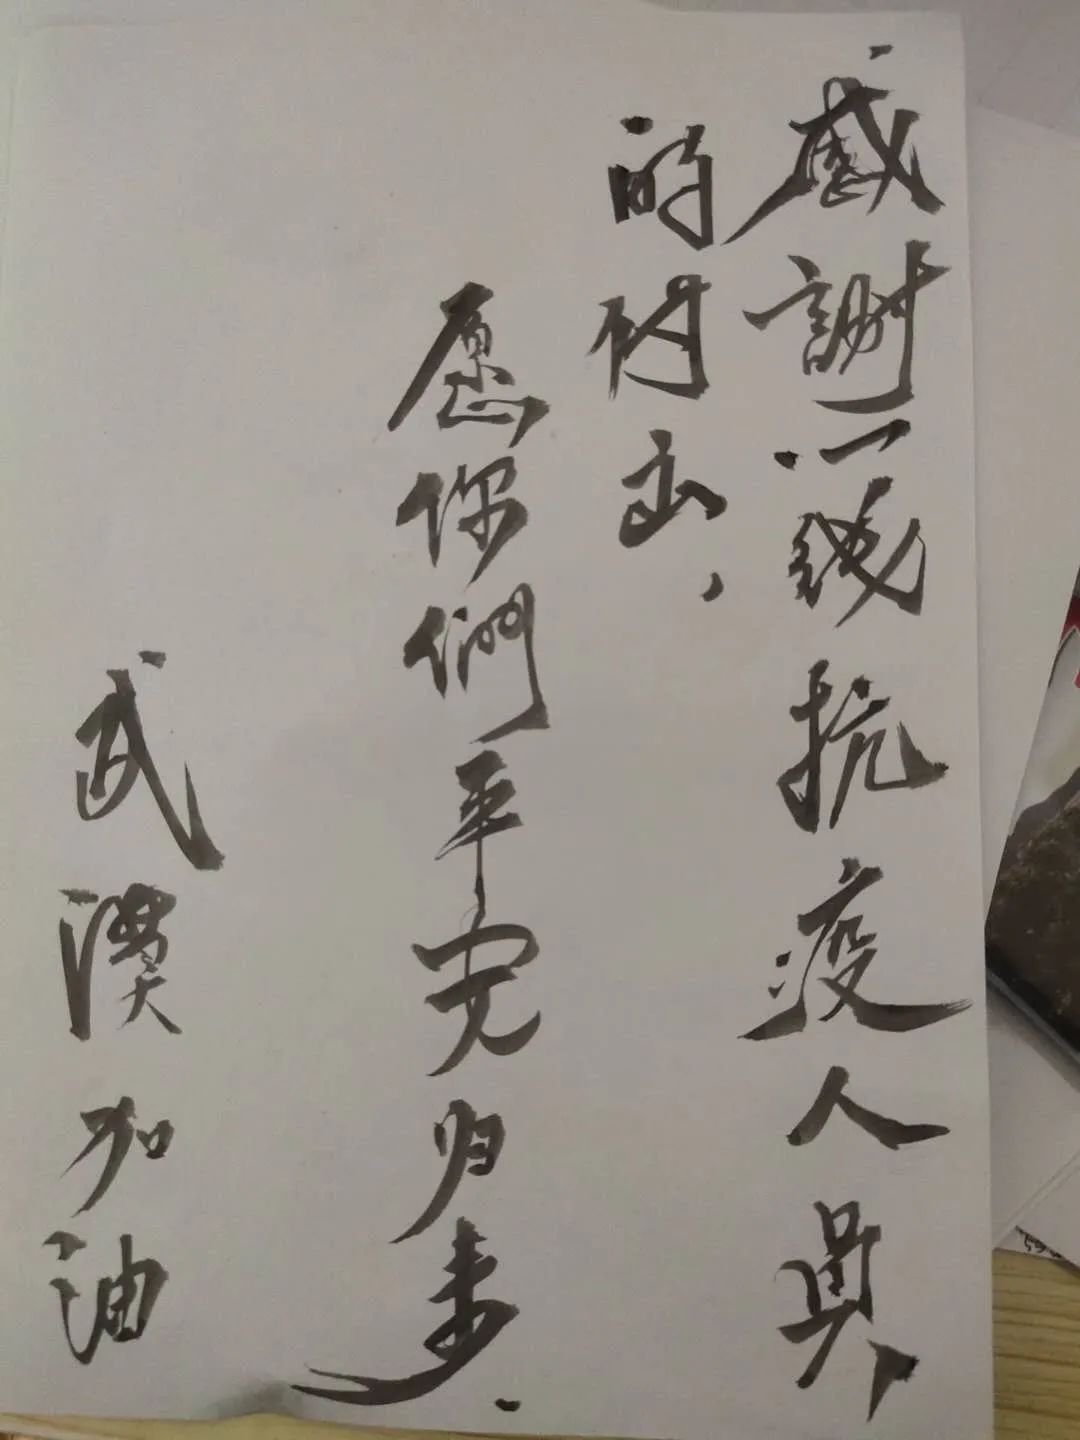 感謝一线抗疫人員
的付出，
愿你們平安归来.
武漢加油